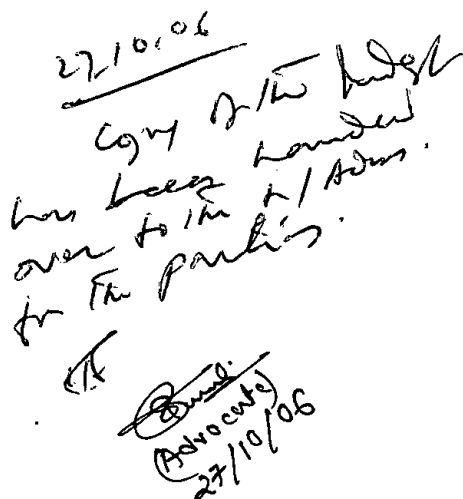 27.10.06
Copy of the Judgt
has been handed
over to the L/Advs.
for the parties.
(Advocate)
27/10/06